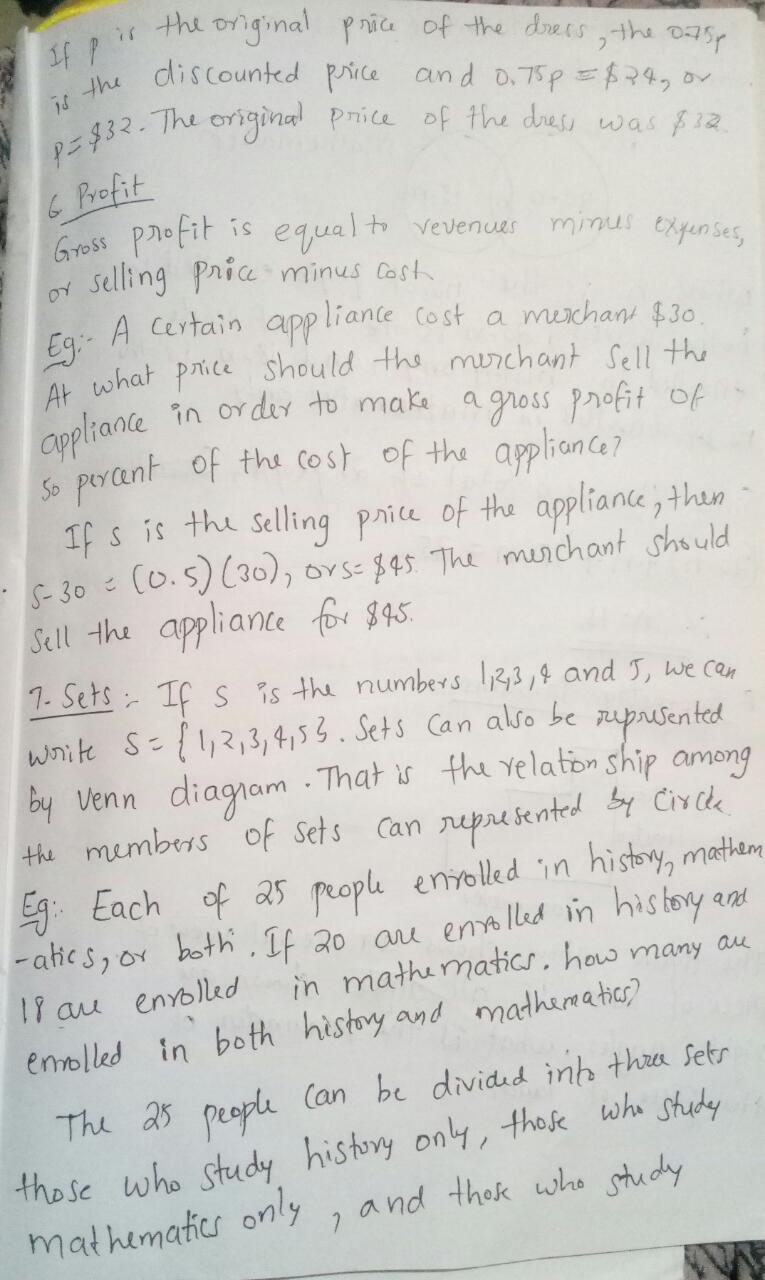 If p is the original price of the dress, the 0.75p
is the discounted price and 0.75p = $24, or
p=$32. The original price of the dress was $32.
6 Profit
Gross profit is equal to revenues minus expenses,
or selling price minus cost
Eg:- A Certain appliance cost a merchant $30.
At what price should the merchant sell the
appliance in order to make a gross profit of
50 percent of the cost of the appliance?
If s is the selling price of the appliance, then
S-30 = (0.5) (30), or s= $45. The merchant should
Sell the appliance for $45.
7. Sets :- If S is the numbers 1,2,3,4 and 5, we can
write S={1,2,3,4,5}. Sets can also be represented
by Venn diagram. That is the relation ship among
the members of sets can represented by Circle.
Eg:. Each of 25 people enrolled in history, mathem
-atics, or both. If 20 are enrolled in history and
18 are enrolled in mathematics. how many are
enrolled in both history and mathematics?
The 25 people can be divided into three sets
those who study history only, those who study
mathematics only, and those who study